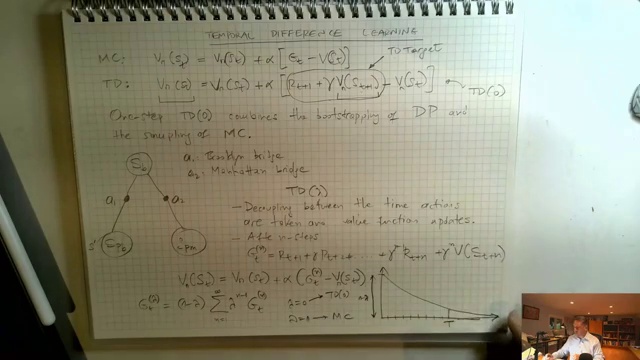 TEMPORAL DIFFERENCE LEARNING
MC: Vπ(St) = Vπ(St) + α [Gt − V(St)]
TD Target
TD: Vπ(St) = Vπ(St) + α [Rt+1 + γ Vπ(St+1) − Vπ(St)] TD(0)
One step TD(0) combines the bootstrapping of DP and
the sampling of MC.
S0
a1: Brooklyn bridge
a2: Manhattan bridge
a1 a2
TD(λ)
— Decoupling between the time actions
are taken and value function updates.
— After n-steps
Gt(n) = Rt+1 + γ Rt+2 + ... + γ Rt+n + γn V(St+n)
Vπ(St) = Vπ(St) + α (Gt(n) − Vπ(St))
Gt(n) = (1−λ) Σ λn-1 Gt(n)
λ=0 → TD(0)
λ=1 → MC
1-λ
T